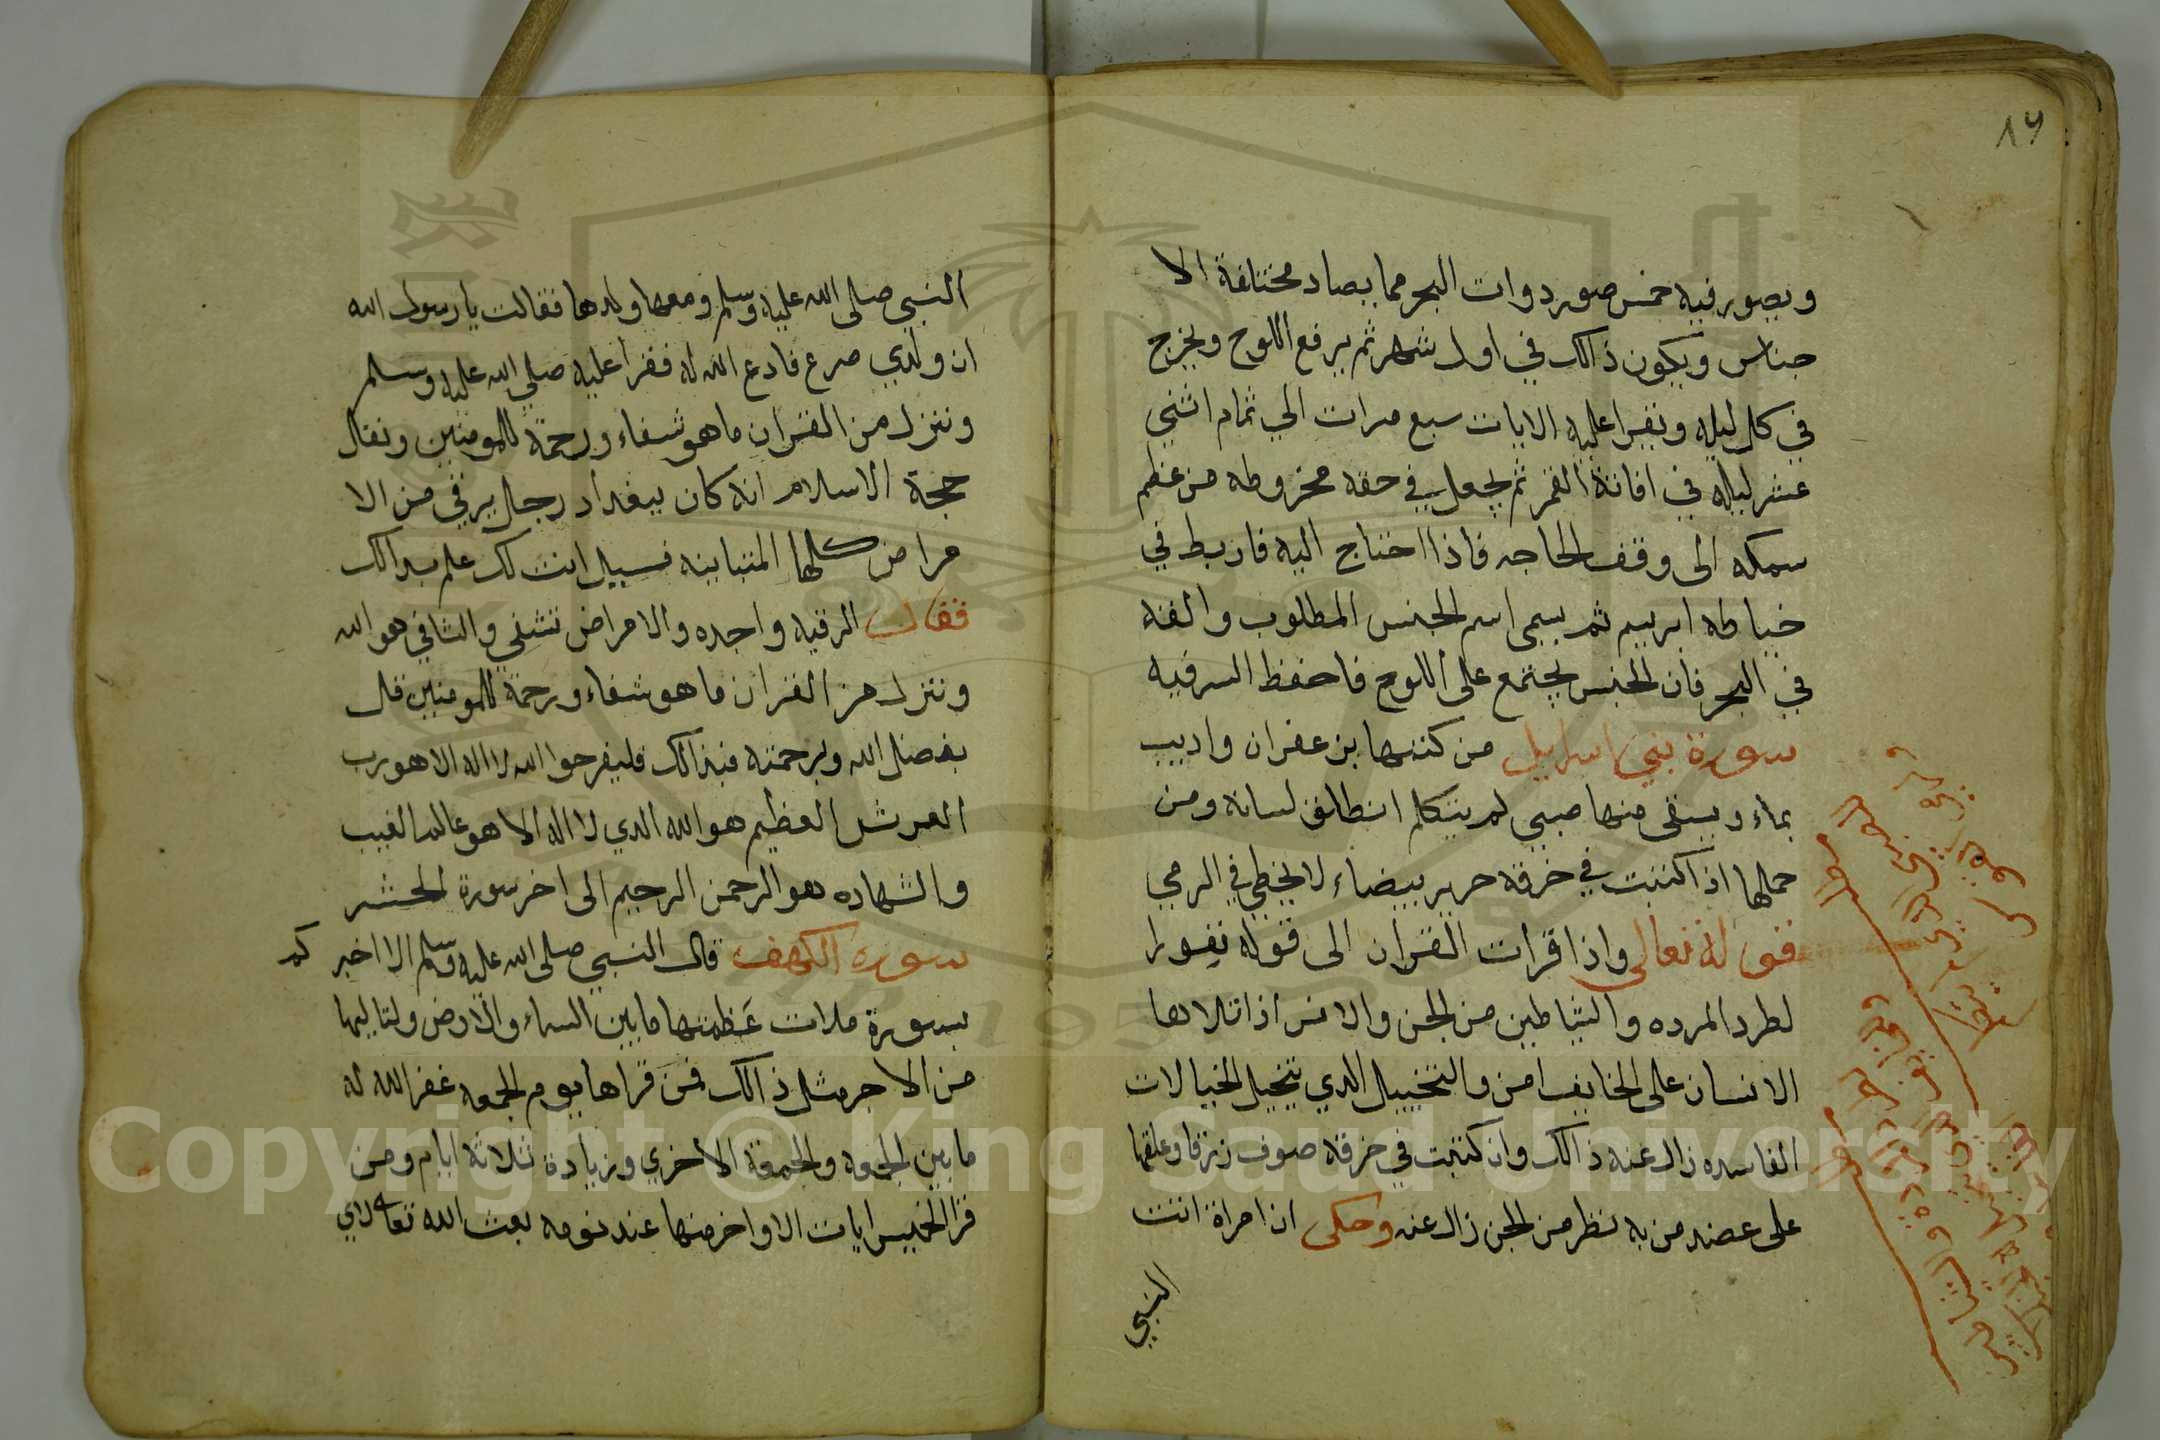 ٨٦
ويصور فيه خمس صور دوات البحر مما يصاد مختلفة الا
جناس ويكون ذالك في اول شهر ثم يرفع اللوح ويخرج
في كل ليله ونقرا عليه الايات سبع مرات الي تمام اثني
عشر ليله في القمر ثم يجعل في حقه مخروطه من عظم
سمكه الى وقف الحاجه فاذا احتاج اليه فاربط في
خياطه ابريم ثم يسمى اسم الجنس المطلوب والقه
في البحر فان الجنس يجتمع على اللوح فاحفظ السر فيه
سورة بني اسرايل من كتبها بزعفران واديب
بماء ويسقى منها صبي لم يتكلم انطلق لسانه ومن
حملها اذا كتبت في خرقه حرير بيضاء لا يخطي في الرمي
قوله تعالى واذا قرات القران الى قوله نفورا
لطرد المرده والشياطين من الجن والانس اذا تلاها
الانسان على الخايف امن والتخييل الدي يتخيل الخيالات
الفاسده زال عنه ذالك وان كتبت في خرقه صوف زرقا وعلقها
على عضد من به نظر من الجن زال عنه وحكى ان امراة اتت
النبي
النبي صلى الله عليه وسلم ومعها ولدها فقالت يا رسول الله
ان ولدي صرع فادع الله له فقرا عليه صلي الله عليه وسلم
وننزل من القران ما هو شفاء ورحمة للمومنين ونقال
حجة الاسلام انه كان ببغداد رجل يرقي من الا
مراض كلها المتباينه فسيل انت لك علم بدالك
فقال الرقيه واحده والامراض تتشفي والشافي هو الله
وننزل من القران ما هو شفاء ورحمة للمومنين قل
بفضل الله وبرحمته فبذالك فليفرحوا الله لا اله الا هو رب
العرش العظيم هو الله الدي لا اله الا هو عالم الغيب
والشهاده هو الرحمن الرحيم الى اخر سورة الحشر
سورة الكهف قال النبي صلى الله عليه وسلم الا اخبر كم
بسورة ملات عظمتها ما بين السماء والارض ولتاليها
من الاجر مثل ذالك فمن قراها يوم الجمعه غفر الله له
ما بين الجمعه والجمعة الاخري وزيادة ثلاثة ايام ومن
قرا الخمس ايات الاواخر منها عند نومه بعث الله تعاله لاي
Copyright © King Saud University